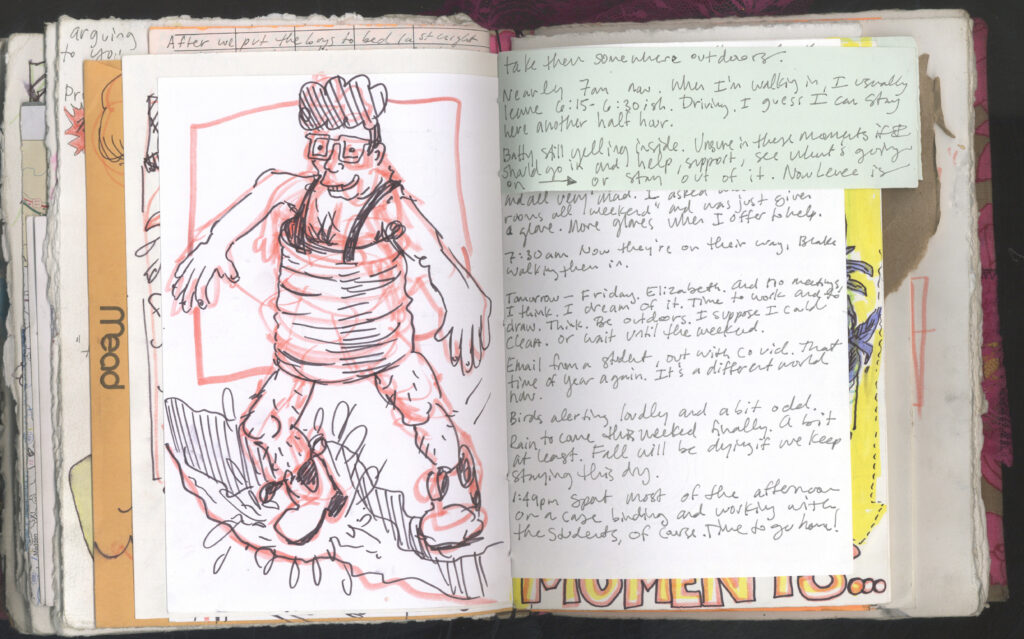 arguing
to you
After we put the boys to bed last night
mead
take them somewhere outdoors.
Nearly 7am now. When I'm walking in, I usually
leave 6:15-6:30ish. Driving, I guess I can stay
here another half hour.
still yelling inside. Unsure in these moments if I
should go in and help, support, see what's going
on → or stay out of it. Now Levee is
and all very mad. I asked
rooms all weekend and was just given
a glare. More glares when I offer to help.
7:30am Now they're on their way, Blake
walking them in.
Tomorrow — Friday. Elizabeth. And no meetings,
I think. I dream of it. Time to work and to
draw. Think. Be outdoors. I suppose I could
clean. Or wait until the weekend.
Email from a student, out with Covid. That
time of year again. It's a different world
now.
Birds alerting loudly and a bit odd.
Rain to come this weekend finally. A bit
at least. Fall will be dying if we keep
staying this dry.
1:49pm Spent most of the afternoon
on a case binding and working with
the students, of course. Time to go home!
MOMENTS...